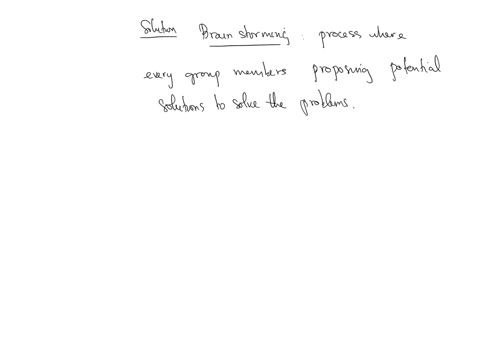 Solution Brain storming : process where
every group members proposing potential
solutions to solve the problems.